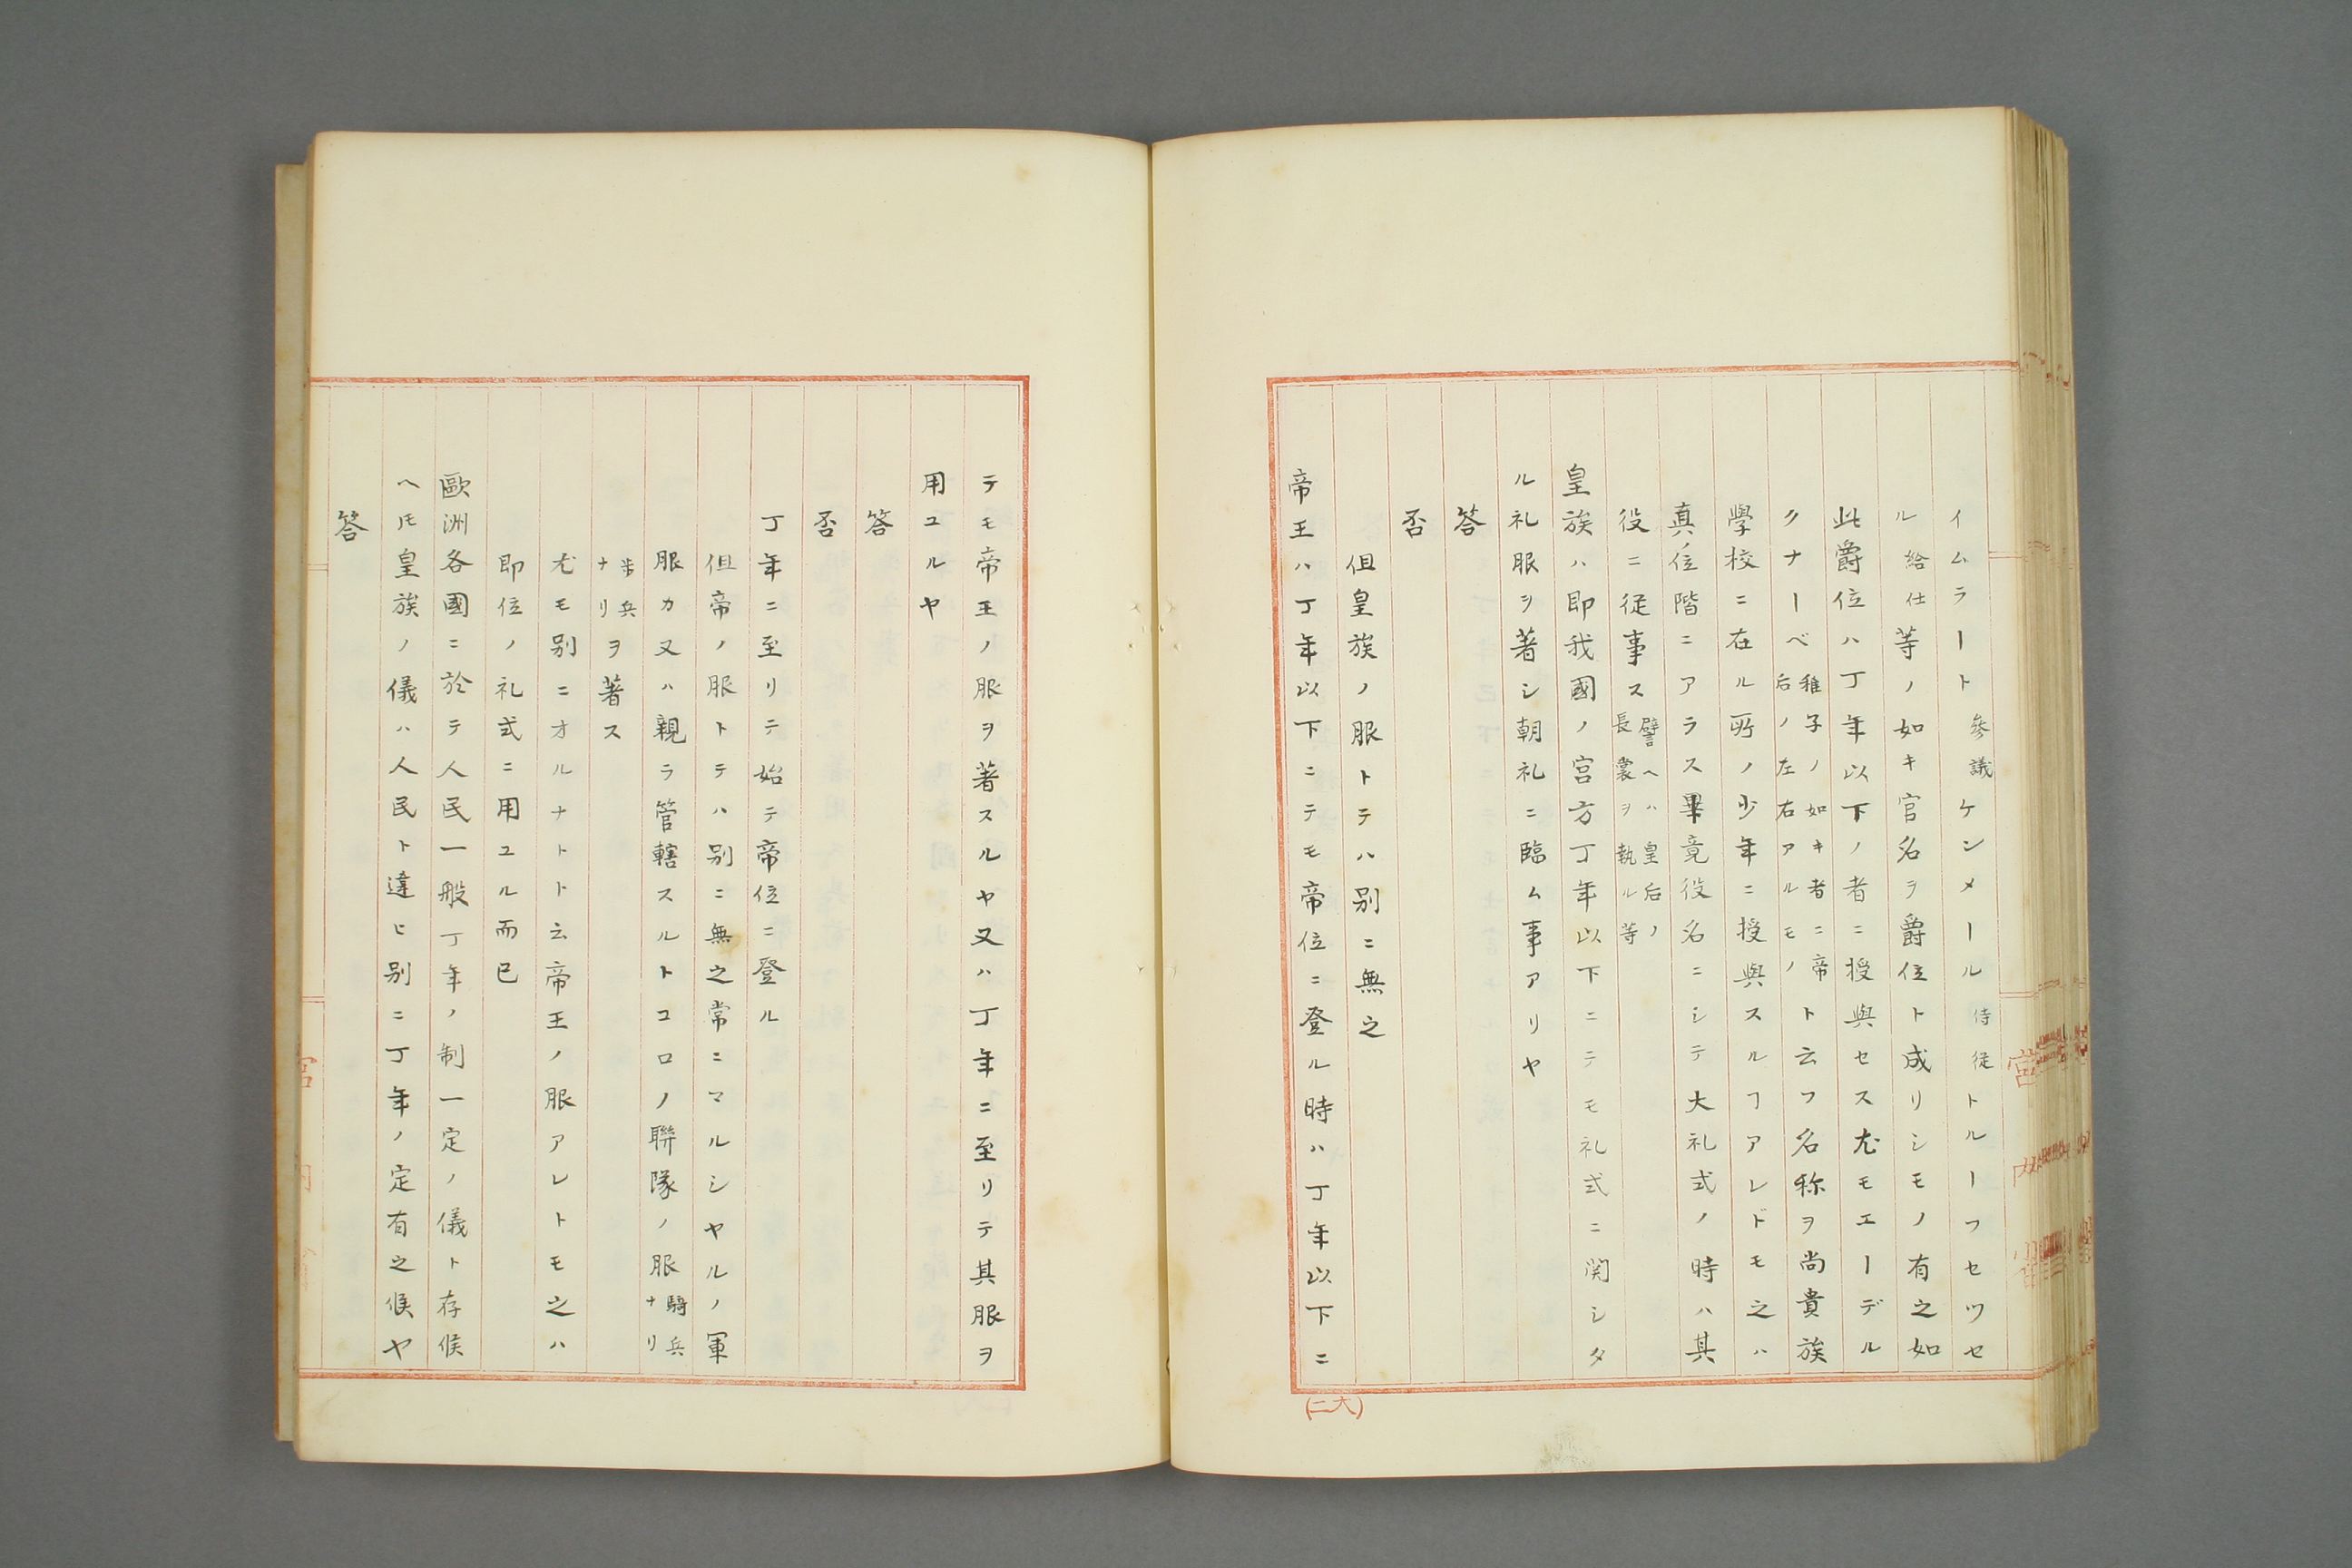 イムラート參議ケンメール侍従トルーフセツセ
ル給仕等ノ如キ官名ヲ爵位ト成リシモノ有之如
此爵位ハ丁年以下ノ者ニ授與セス尤モエーデル
クナーベ稚子ノ如キ者ニ帝后ノ左右アルモノト云フ名称ヲ尚貴族
學校ニ在ル所ノ少年ニ授與スルヿアレドモ之ハ
真ノ位階ニアラス畢竟役名ニシテ大礼式ノ時ハ其
役ニ従事ス譬ヘハ皇后ノ長裳ヲ執ル等
皇族ハ即我國ノ宮方丁年以下ニテモ礼式ニ関シタ
ル礼服ヲ著シ朝礼ニ臨ム事アリヤ
答
否
但皇族ノ服トテハ別ニ無之
帝王ハ丁年以下ニテモ帝位ニ登ル時ハ丁年以下ニ
(二大)
テモ帝王ノ服ヲ著スルヤ又ハ丁年ニ至リテ其服ヲ
用ユルヤ
答
否
丁年ニ至リテ始テ帝位ニ登ル
但帝ノ服トテハ別ニ無之常ニマルシヤルノ軍
服カ又ハ親ラ管轄スルトコロノ聯隊ノ服騎兵ナリ
歩兵ナリヲ著ス
尤モ別ニオルナトト云帝王ノ服アレトモ之ハ
即位ノ礼式ニ用ユル而已
歐洲各國ニ於テ人民一般丁年ノ制一定ノ儀ト存候
ヘ𪜈皇族ノ儀ハ人民ト違ヒ別ニ丁年ノ定有之候ヤ
答
宮
内